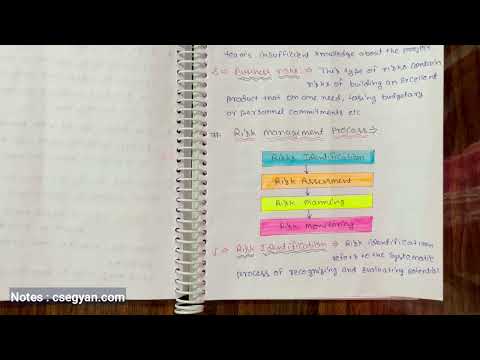 team's insufficient knowledge about the project
Business risks :→ This type of risks contain
risks of building an excellent
product that on one need, losing budgetary
or personnel commitments etc
Risk Management Process :→
Risks Identification
Risk Assessment
Risk Planning
Risk Monitoring
Risk Identification :→ Risk identification
refers to the systematic
process of recognizing and evaluating potential
Notes : csegyan.com